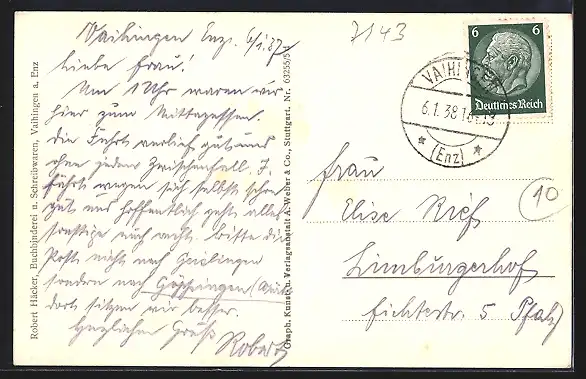 Robert Häcker, Buchbinderei u. Schreibwaren, Vaihingen a. Enz
Vaihingen Enz. 6/1.37
Liebe Frau!
Um 1 Uhr waren wir
hier zum Mittagessen.
Die Fahrt verlief gut und
ohne jeden Zwischenfall. I.
fährt wegen sich selbst schon
gut und hoffentlich geht alles
sonstige auch recht. Bitte die
Post nicht nach
sondern nach Göppingen
dort sitzen wir besser.
Herzlichen Gruß
Robert
Graph. Kunst- u. Verlagsanstalt A. Weber & Co., Stuttgart. Nr. 63255/5
7143
6 6
Deutsches Reich
VAIHINGEN
6.1.38
(Enz)
10
Frau
Elise Rief
Limburgerhof
Fichtestr. 5 Pfalz